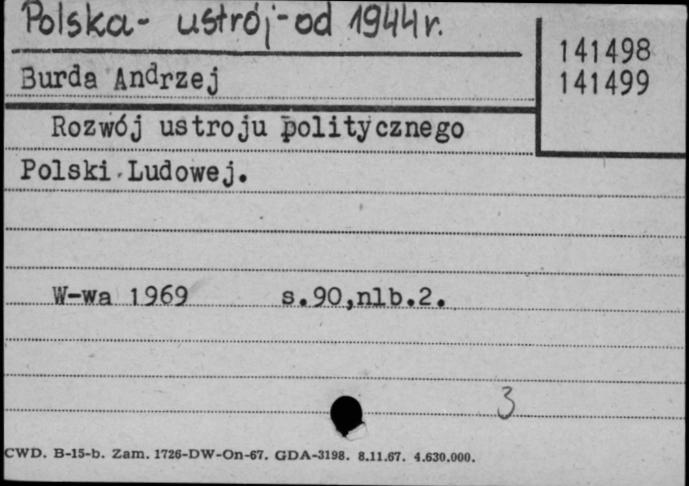 Polska - ustrój - od 1944 r.
141498
Burda Andrzej
141499
Rozwój ustroju politycznego
Polski Ludowej.
W-wa 1969 s.90,nlb.2.
3
CWD. B-15-b. Zam. 1726-DW-On-67. GDA-3198. 8.11.67. 4.630.000.